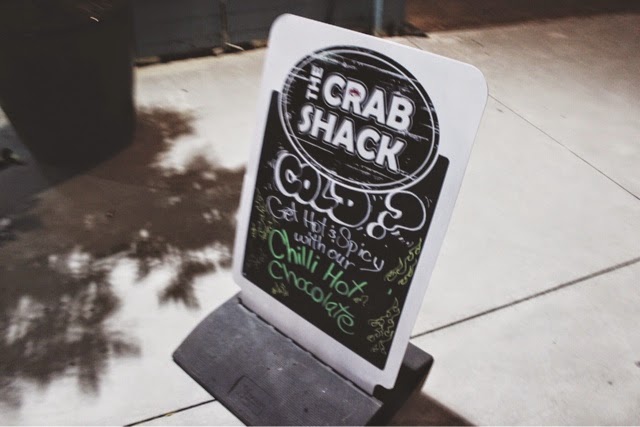 THE
CRAB
SHACK
COLD?
Get Hot & Spicy
with our
Chilli Hot
Chocolate